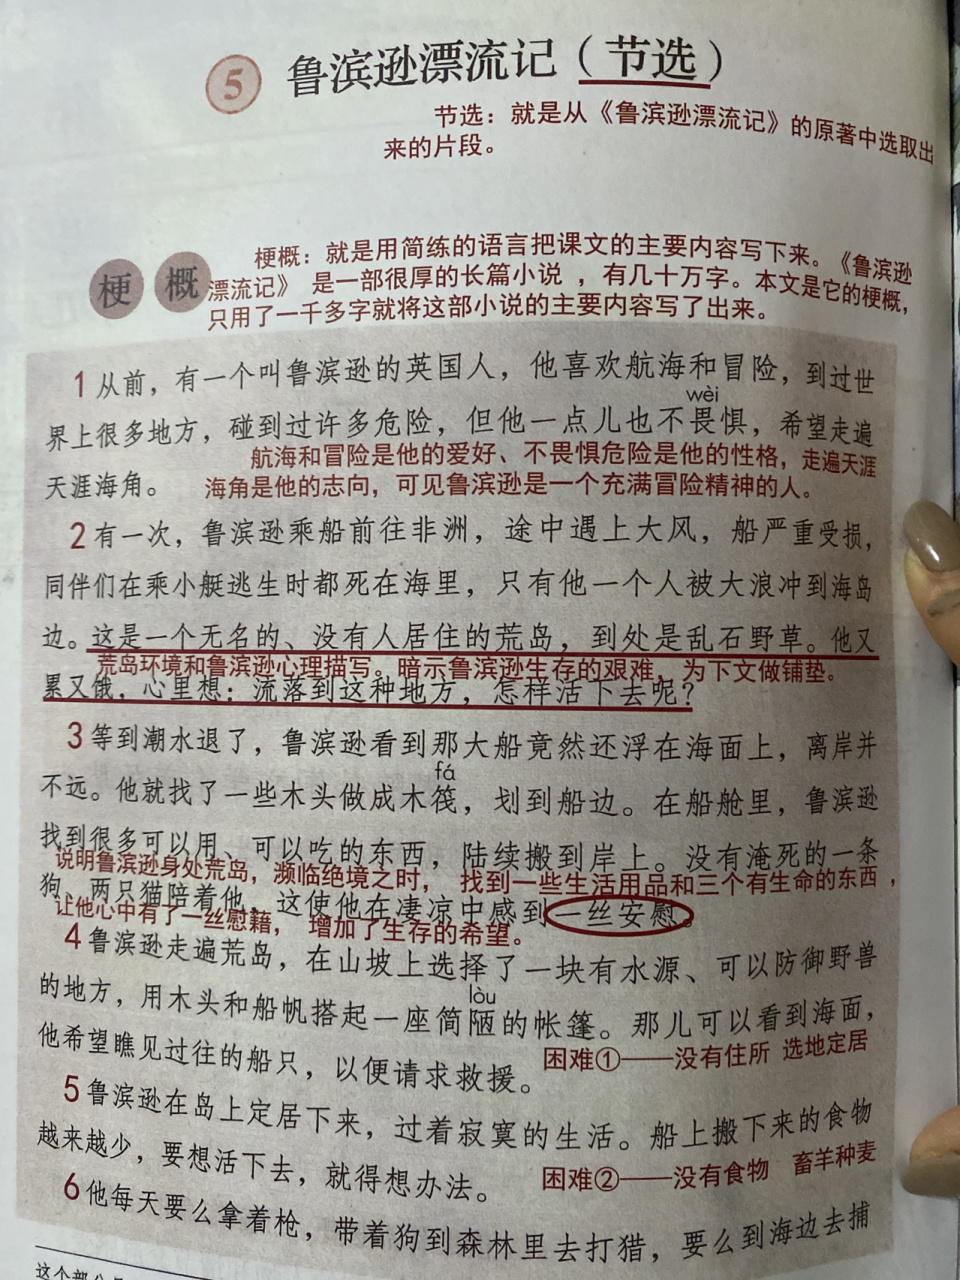 5 鲁滨逊漂流记（节选）
节选：就是从《鲁滨逊漂流记》的原著中选取出
来的片段。
梗概
梗概：就是用简练的语言把课文的主要内容写下来。《鲁滨逊
漂流记》 是一部很厚的长篇小说 ，有几十万字。本文是它的梗概，
只用了一千多字就将这部小说的主要内容写了出来。
1 从前，有一个叫鲁滨逊的英国人，他喜欢航海和冒险，到过世
wèi
界上很多地方，碰到过许多危险，但他一点儿也不畏惧，希望走遍
航海和冒险是他的爱好、不畏惧危险是他的性格，走遍天涯
天涯海角。
海角是他的志向，可见鲁滨逊是一个充满冒险精神的人。
2 有一次，鲁滨逊乘船前往非洲，途中遇上大风，船严重受损，
同伴们在乘小艇逃生时都死在海里，只有他一个人被大浪冲到海岛
边。这是一个无名的、没有人居住的荒岛，到处是乱石野草。他又
荒岛环境和鲁滨逊心理描写。暗示鲁滨逊生存的艰难，为下文做铺垫。
累又饿，心里想：流落到这种地方，怎样活下去呢？
3 等到潮水退了，鲁滨逊看到那大船竟然还浮在海面上，离岸并
fá
不远。他就找了一些木头做成木筏，划到船边。在船舱里，鲁滨逊
找到很多可以用、可以吃的东西，陆续搬到岸上。没有淹死的一条
说明鲁滨逊身处荒岛，濒临绝境之时， 找到一些生活用品和三个有生命的东西，
狗、两只猫陪着他，这使他在凄凉中感到一丝安慰。
让他心中有了一丝慰藉， 增加了生存的希望。
4 鲁滨逊走遍荒岛，在山坡上选择了一块有水源、可以防御野兽
lòu
的地方，用木头和船帆搭起一座简陋的帐篷。那儿可以看到海面，
他希望瞧见过往的船只，以便请求救援。
困难①——没有住所 选地定居
5 鲁滨逊在岛上定居下来，过着寂寞的生活。船上搬下来的食物
越来越少，要想活下去，就得想办法。
困难②——没有食物 畜羊种麦
6 他每天要么拿着枪，带着狗到森林里去打猎，要么到海边去捕